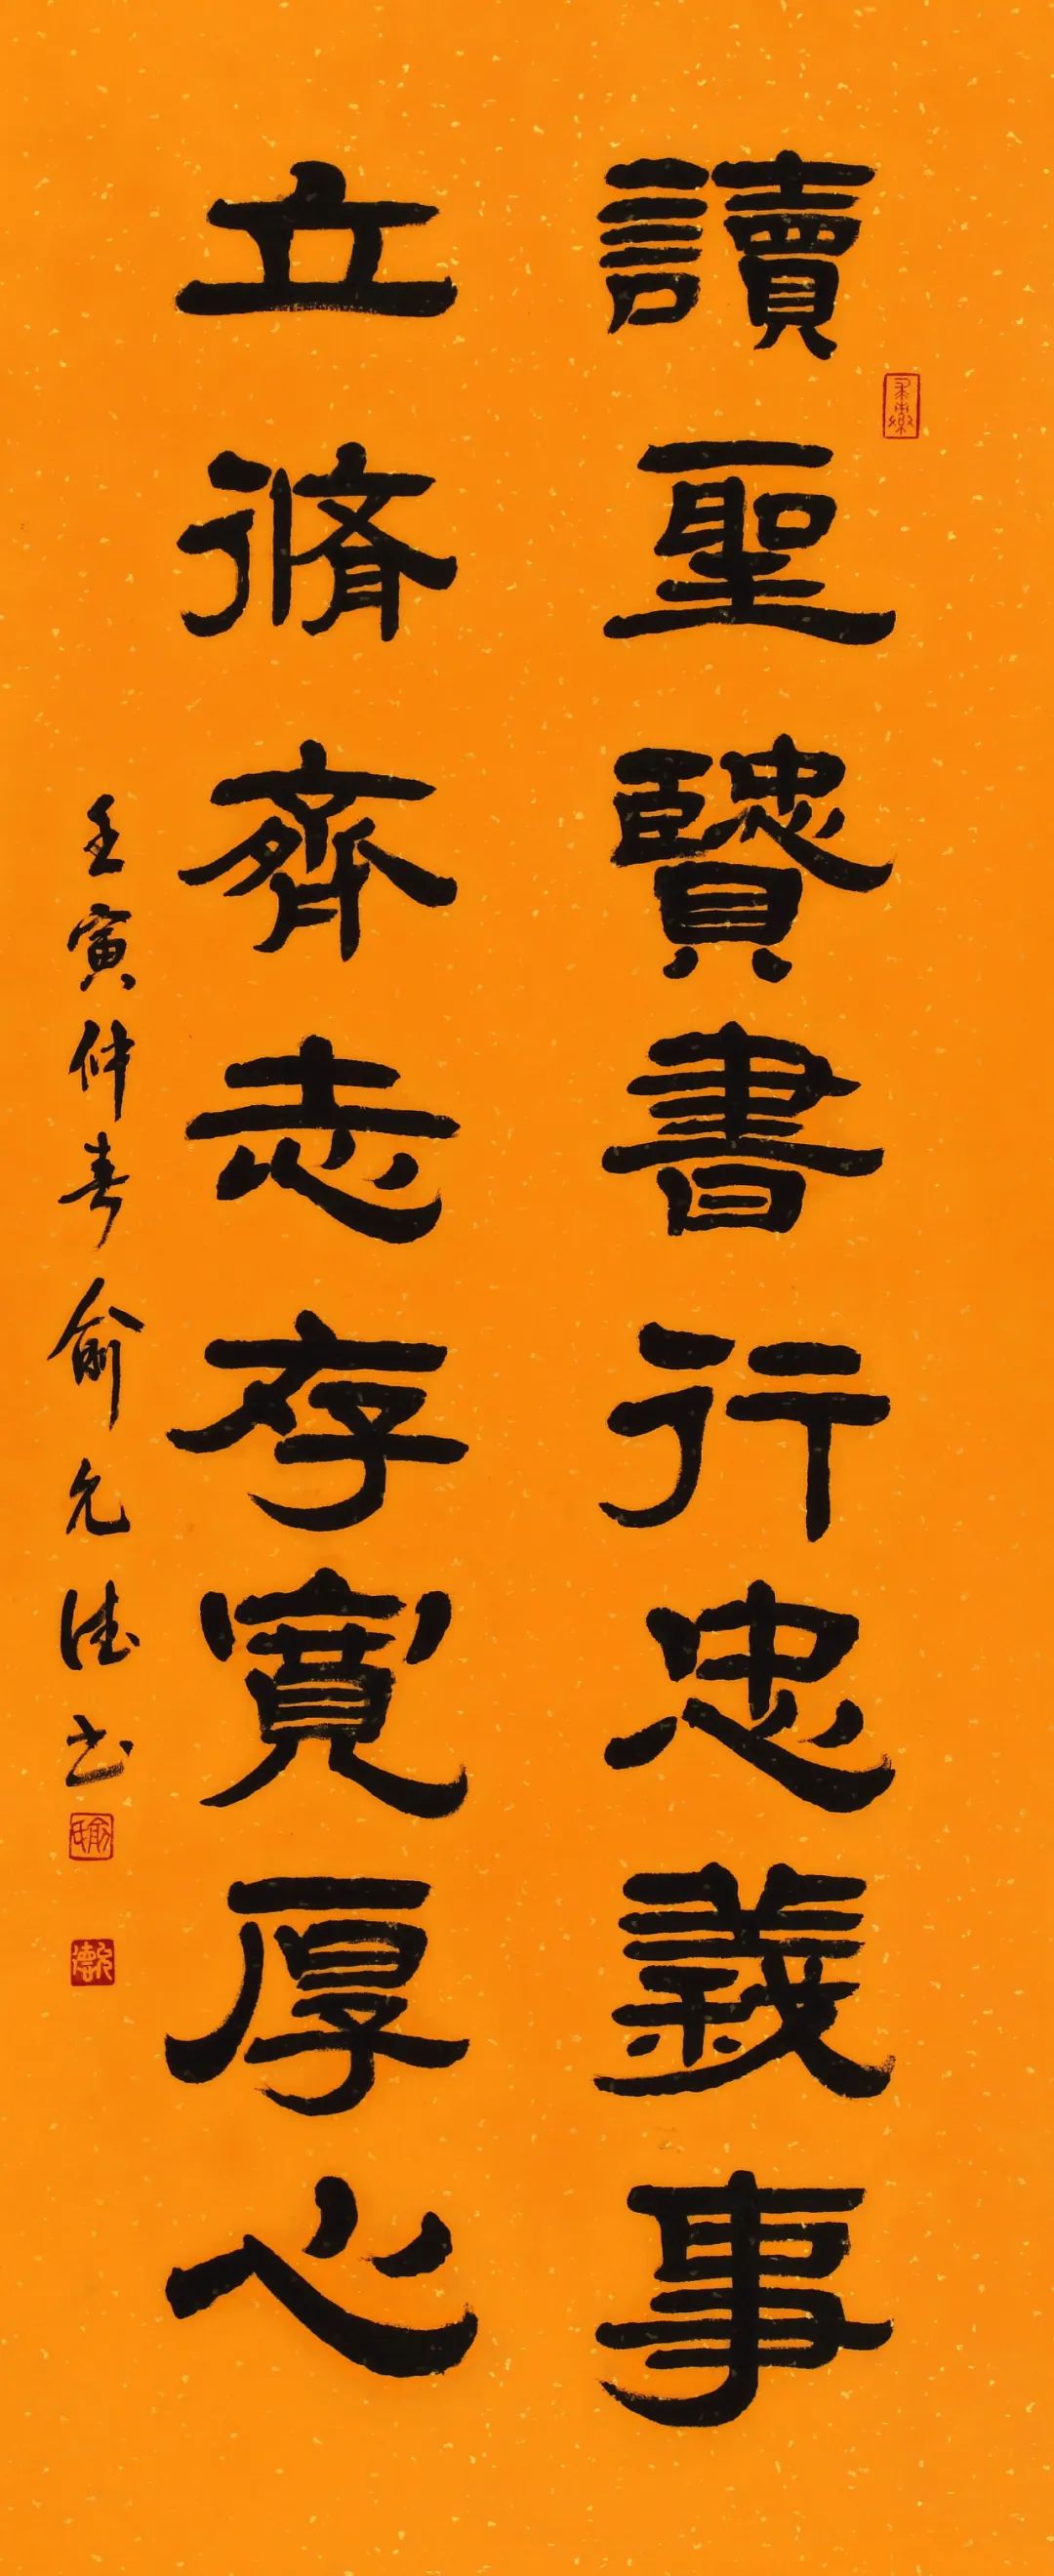 讀聖賢書行忠義事
立脩齊志存寬厚心
壬寅仲春俞允德书